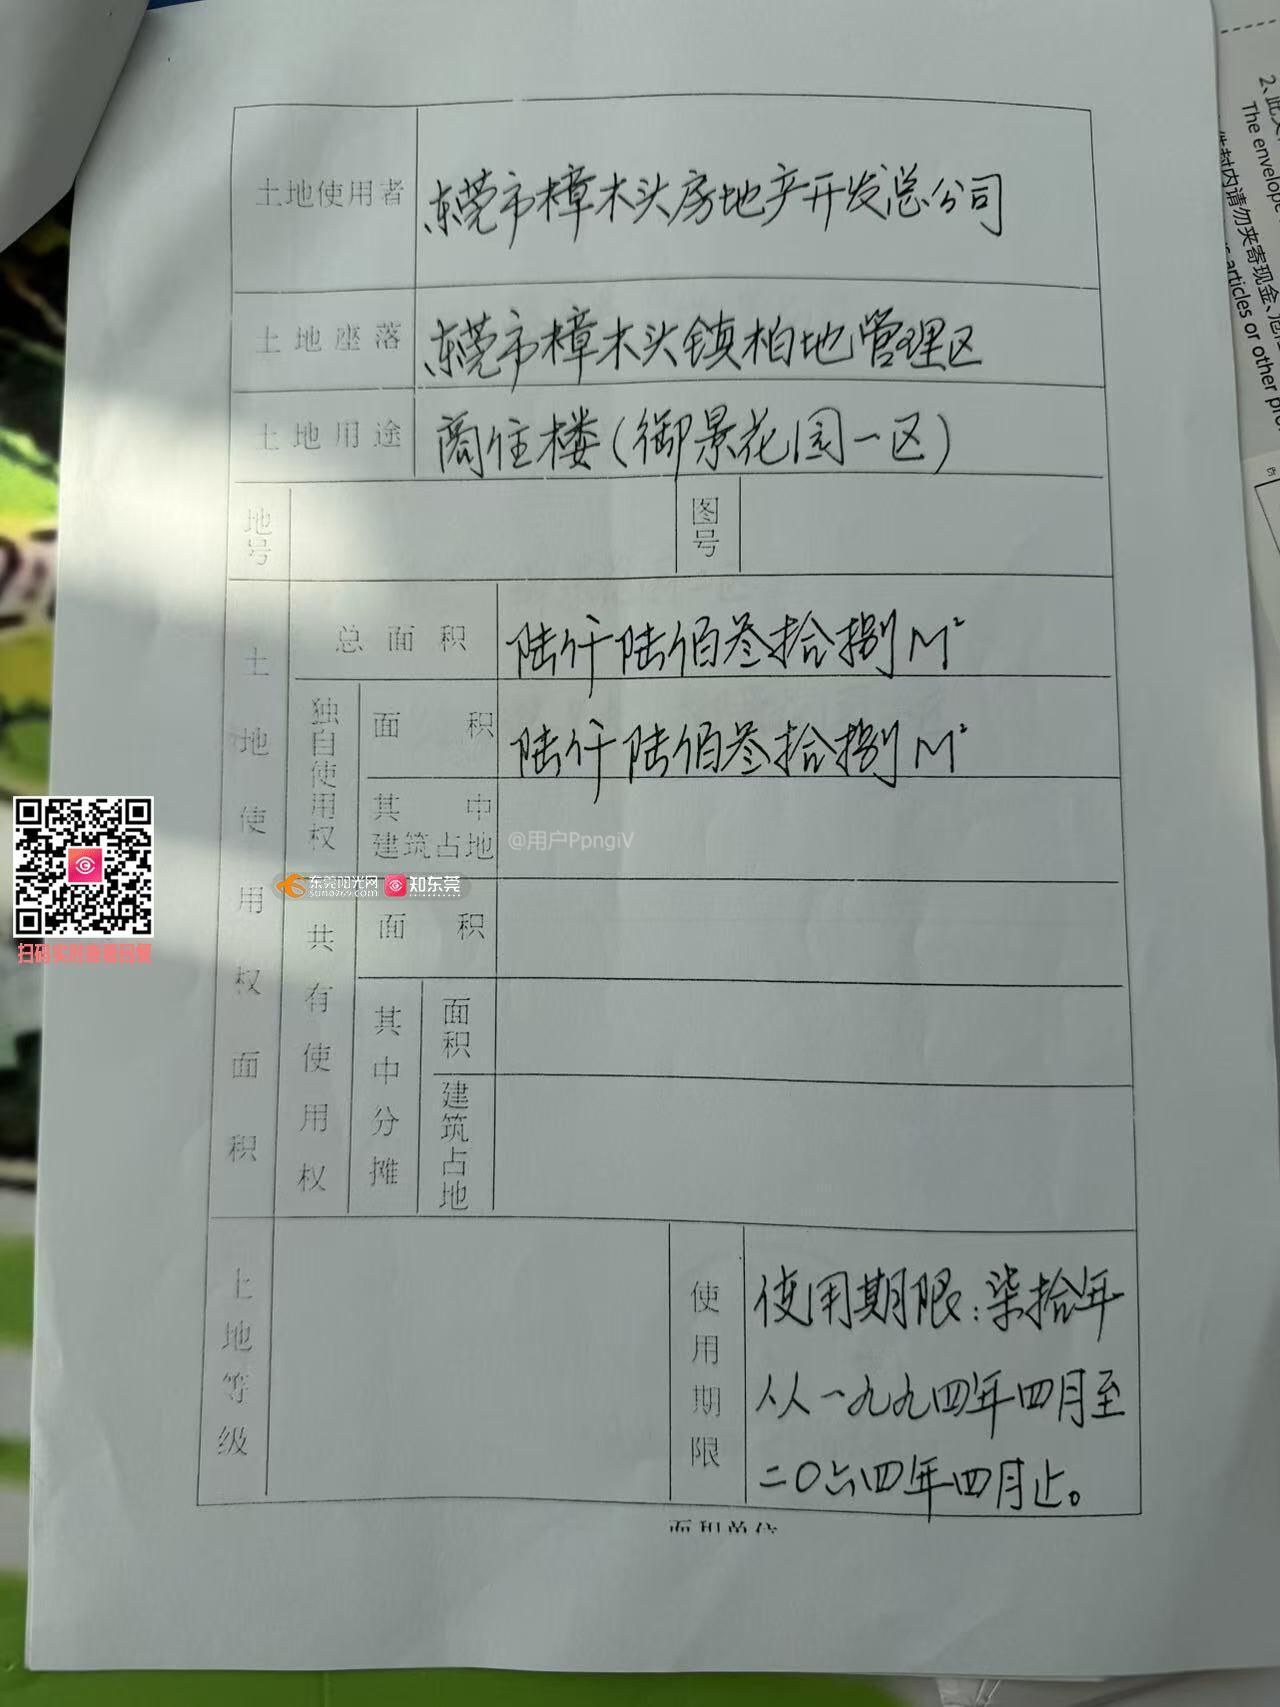 土地使用者 东莞市樟木头房地产开发总公司
土地座落 东莞市樟木头镇柏地管理区
土地用途 商住楼(御景花园一区)
地号
图号
土地使用权面积
总面积 陆仟陆佰叁拾捌M²
独自使用权
面积 陆仟陆佰叁拾捌M²
其中
建筑占地
共有使用权
面积
其中分摊
面积
建筑占地
土地等级
使用期限
使用期限:柒拾年
从一九九四年四月至
二〇六四年四月止。
面积单位
@用户PpngiV
东莞阳光网
sun0769.com
知东莞
扫码实时查看回复
2、此
The envelope
封内请勿夹寄现金、
articles or other